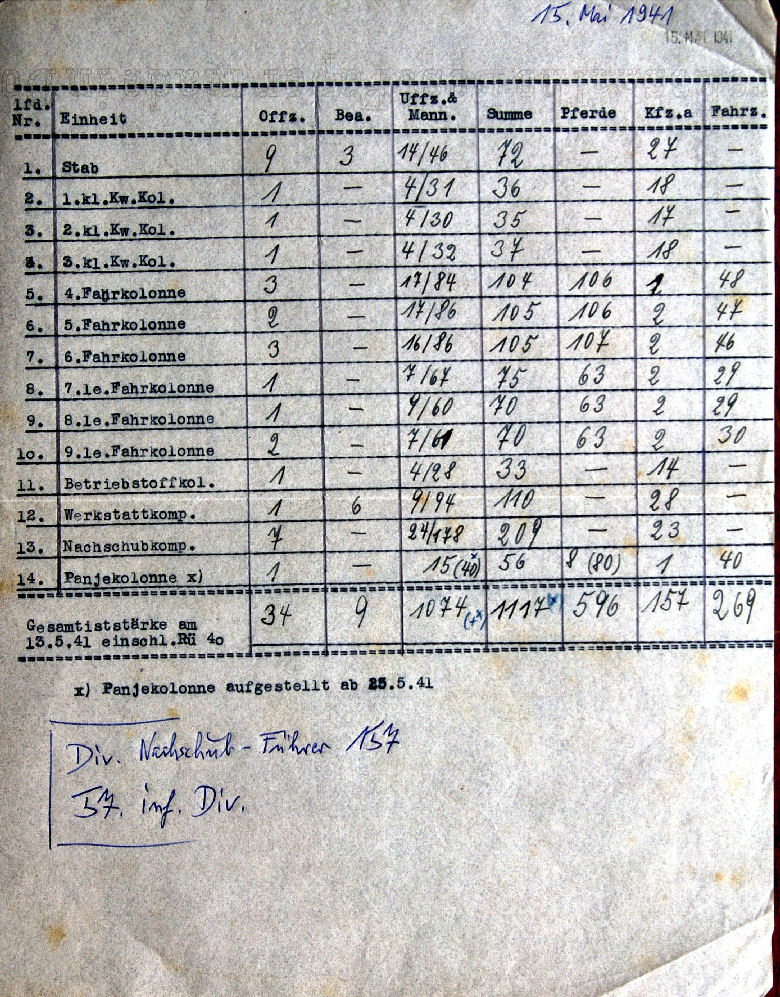 15. Mai 1941
15. MAI 1941
lfd. Nr. Einheit Offz. Bea. Uffz.& Mann. Summe Pferde Kfz.a Fahrz.
1. Stab 9 3 14/46 72 — 27 —
2. 1.kl.Kw.Kol. 1 — 4/31 36 — 18 —
3. 2.kl.Kw.Kol. 1 — 4/30 35 — 17 —
4. 3.kl.Kw.Kol. 1 — 4/32 37 — 18 —
5. 4.Fahrkolonne 3 — 17/84 104 106 1 48
6. 5.Fahrkolonne 2 — 17/86 105 106 2 47
7. 6.Fahrkolonne 3 — 16/86 105 107 2 46
8. 7.le.Fahrkolonne 1 — 7/67 75 63 2 29
9. 8.le.Fahrkolonne 1 — 9/60 70 63 2 29
10. 9.le.Fahrkolonne 2 — 7/61 70 63 2 30
11. Betriebstoffkol. 1 — 4/28 33 — 14 —
12. Werkstattkomp. 1 6 9/94 110 — 28 —
13. Nachschubkomp. 7 — 24/178 209 — 23 —
14. Panjekolonne x) 1 — 15 (40) x 56 8 (80) 1 40
Gesamtiststärke am 13.5.41 einschl.Rü 4o 34 9 1074 (+x) 1117 x 596 157 269
x) Panjekolonne aufgestellt ab 25.5.41
Div. Nachschub-Führer 157
57. inf. Div.